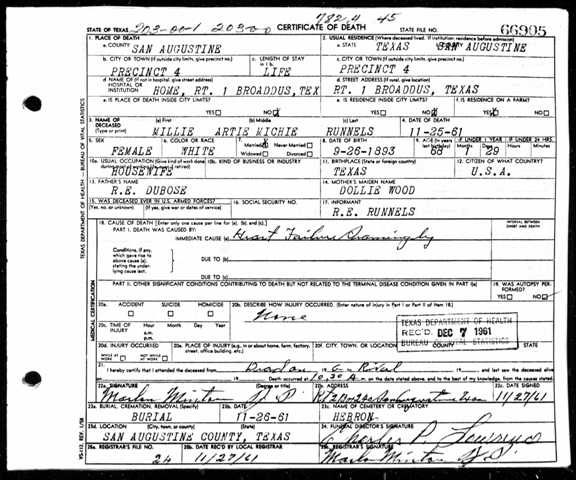 782.4 45
STATE OF TEXAS 203-00-1 20300 CERTIFICATE OF DEATH STATE FILE NO. 66905
1. PLACE OF DEATH 2. USUAL RESIDENCE (Where deceased lived. If institution: residence before admission)
a. COUNTY SAN AUGUSTINE a. STATE TEXAS SAN AUGUSTINE
b. CITY OR TOWN (If outside city limits, give precinct no.) c. LENGTH OF STAY in 1 b. c. CITY OR TOWN (If outside city limits, give precinct no.)
PRECINCT 4 LIFE PRECINCT 4
d. NAME OF (If not in hospital, give street address) HOSPITAL OR INSTITUTION d. STREET ADDRESS (If rural, give location)
HOME, RT. 1 BROADDUS, TEX RT. 1 BROADDUS, TEXAS
e. IS PLACE OF DEATH INSIDE CITY LIMITS? e. IS RESIDENCE INSIDE CITY LIMITS? f. IS RESIDENCE ON A FARM?
YES NO YES NO YES NO
3. NAME OF DECEASED (Type or print) (a) First (b) Middle (c) Last 4. DATE OF DEATH
WILLIE ARTIE MICHIE RUNNELS 11-25-61
5. SEX 6. COLOR OR RACE 7. Married Never Married 8. DATE OF BIRTH 9. AGE IF UNDER 1 YEAR IF UNDER 24 HRS.
FEMALE WHITE Widowed Divorced 9-26-1893 68 1 29
10a. USUAL OCCUPATION (Give kind of work done 10b. KIND OF BUSINESS OR INDUSTRY 11. BIRTHPLACE (State or foreign country) 12. CITIZEN OF WHAT COUNTRY?
HOUSEWIFE TEXAS U.S.A.
13. FATHER'S NAME 14. MOTHER'S MAIDEN NAME
R.E. DUBOSE DOLLIE WOOD
15. WAS DECEASED EVER IN U.S. ARMED FORCES? 16. SOCIAL SECURITY NO. 17. INFORMANT
(Yes, no, or unknown) (If yes, give war or dates of service) R.E. RUNNELS
18. CAUSE OF DEATH [Enter only one cause per line for (a), (b), and (c).] INTERVAL BETWEEN ONSET AND DEATH
PART I. DEATH WAS CAUSED BY:
IMMEDIATE CAUSE (a) Heart Failure
Conditions, if any, which gave rise to above cause (a), stating the underlying cause last. DUE TO (b)
DUE TO (c)
PART II. OTHER SIGNIFICANT CONDITIONS CONTRIBUTING TO DEATH BUT NOT RELATED TO THE TERMINAL DISEASE CONDITION GIVEN IN PART I(a) 19. WAS AUTOPSY PERFORMED?
YES NO
20a. ACCIDENT SUICIDE HOMICIDE 20b. DESCRIBE HOW INJURY OCCURRED. (Enter nature of injury in Part I or Part II of item 18.)
None
20c. TIME OF INJURY Hour a.m. p.m. Month Day Year
TEXAS DEPARTMENT OF HEALTH
REC'D DEC 7 1961
BUREAU OF VITAL STATISTICS
20d. INJURY OCCURRED 20e. PLACE OF INJURY (e.g., in or about home, farm, factory, street, office building, etc.) 20f. CITY, TOWN, OR LOCATION COUNTY STATE
WHILE AT WORK NOT WHILE AT WORK
21. I hereby certify that I attended the deceased and last saw the deceased alive
Death occurred at 10:30 A.
22a. SIGNATURE (Degree or title) 22b. ADDRESS 22c. DATE SIGNED
Marlon Minton J.P. 11/27/61
23a. BURIAL, CREMATION, REMOVAL (Specify) 23b. DATE 23c. NAME OF CEMETERY OR CREMATORY
BURIAL 11-26-61 HEBRON
23d. LOCATION (City, town, or county) (State) 24. FUNERAL DIRECTOR'S SIGNATURE
SAN AUGUSTINE COUNTY, TEXAS
25a. REGISTRAR'S FILE NO. 25b. DATE REC'D BY LOCAL REGISTRAR 25c. REGISTRAR'S SIGNATURE
24 11/27/61 Marlon Minton J.P.
TEXAS DEPARTMENT OF HEALTH — BUREAU OF VITAL STATISTICS
MEDICAL CERTIFICATION